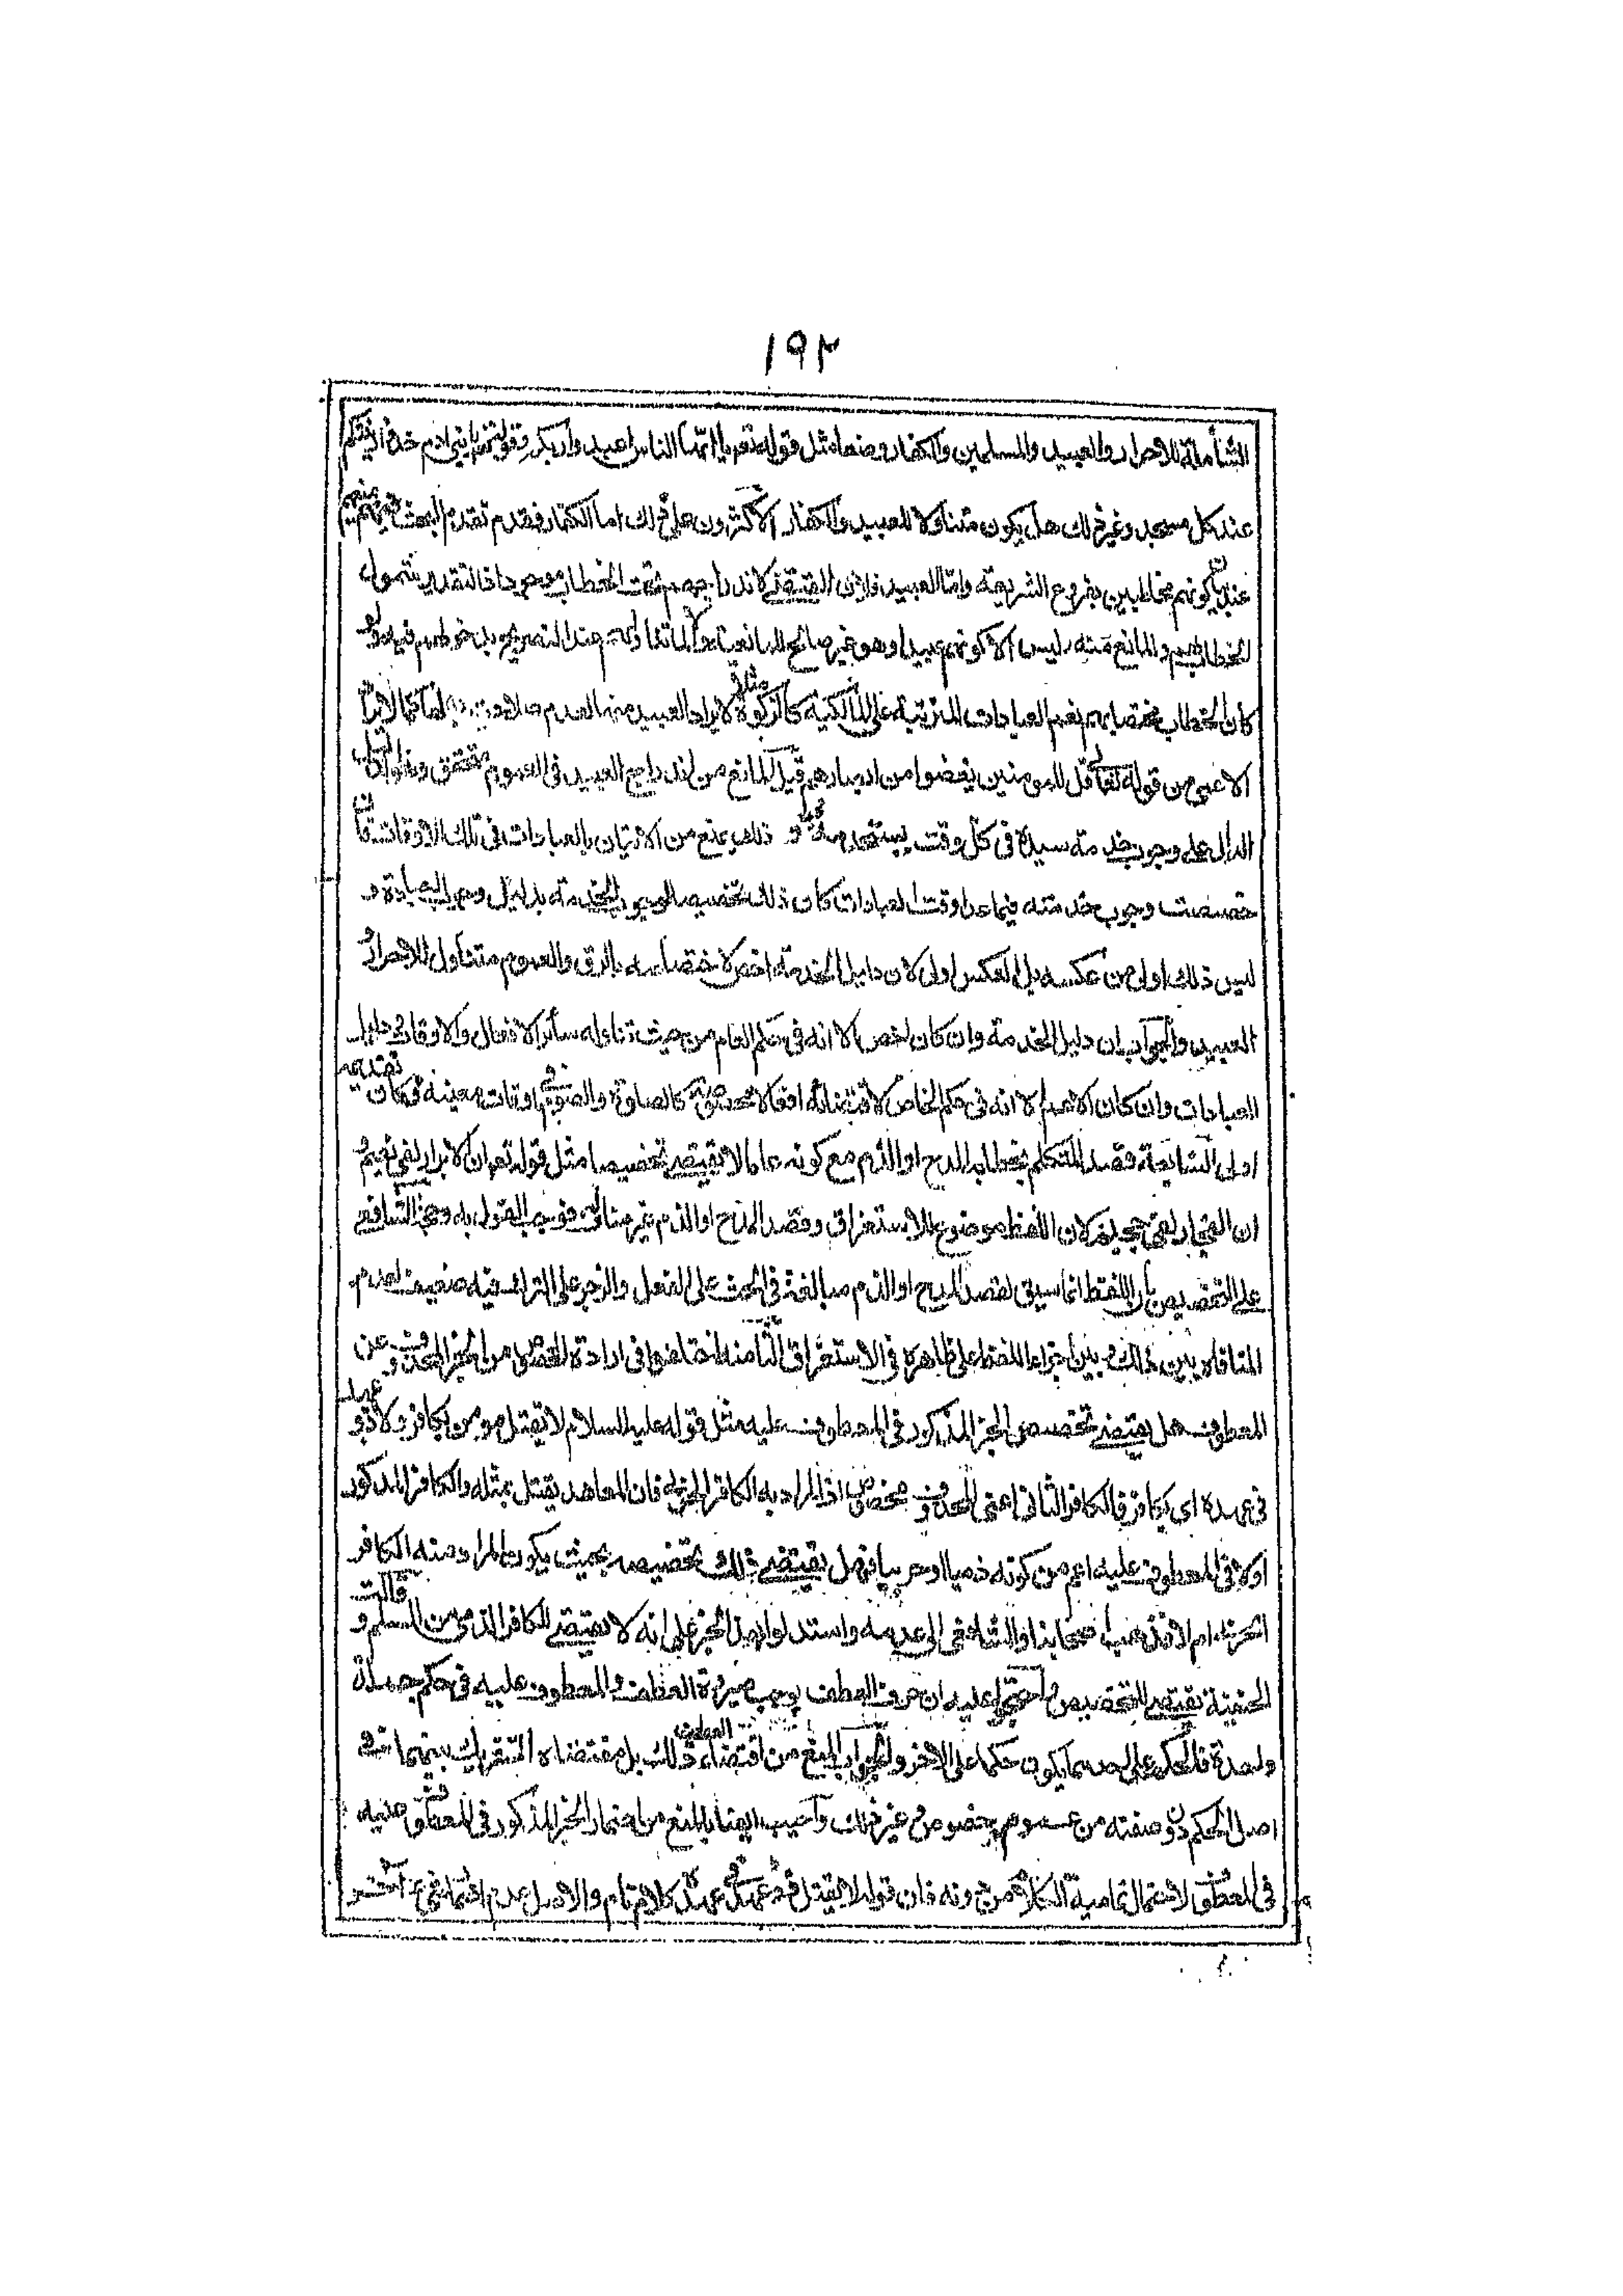 ١٩٢
الشاملة للاحرار والعبيد والمسلمين والكفار وضعا مثل قوله تعم يا ايها الناس اعبدوا ربكم وقوله تعم يا بنى ادم خذوا زينتكم
عند كل مسجد وغير ذلك هل يكون متناولا للعبيد والكفار الاكثرون على ذلك اما الكفار فقد تقدم البحث
كونهم مخاطبين بفروع الشريعة واما العبيد فلان المقتضى لاندراجهم تحت الخطاب موجود اذ التقدير شمول
الخطاب لهم والمانع منه ليس الا كونهم عبيدا وهو غير صالح للمانعية
كان الخطاب مختصا بهم نعم العبادات المترتبة على المالكية كالزكوة مثلا لا يراد العبيد منها لعدم
الاعمى من قوله تعالى قل للمومنين يغضوا من ابصارهم قيل المانع من اندراج العبيد فى العموم متحقق وهو
الدال على وجوب خدمة سيده فى كل وقت يستخدمه و ذلك يمنع من الاتيان بالعبادات فى تلك الاوقات فان
خصصت وجوب خدمته فيما عدا وقت العبادات كان ذلك تخصيص الوجوب الخدمة بدليل وجوب العبادة و
ليس ذلك اولى من عكسه بل العكس اولى لان دليل الخدمة اخص لاختصاصه بالرق والعموم متناول للاحرار و
العبيد والجواب ان دليل الخدمة وان كان اخص الا انه فى حكم العام من حيث تناوله سائر الافعال والاوقات و دليل
العبادات وان كان الاعم الا انه فى حكم الخاص لاقتضائه افعالا مخصوصة كالصلوة والصوم فى اوقات معينة فكان تقديمه
اولى السابعة قصد المتكلم بخطابه المدح او الذم مع كونه عاما لا يقتضى تخصيصا مثل قوله تعم ان الابرار لفى نعيم و
ان الفجار لفى جحيم لان اللفظ موضوع للاستغراق وقصد المدح او الذم غير مناف له فوجب القول به ومنع الشافعى
على التخصيص بان اللفظ انما سيق لقصد المدح او الذم مبالغة فى الحث على الفعل والزجر على الترك فيه ضعيف لعدم
المنافاة بين ذلك وبين اجراء اللفظ على ظاهره فى الاستغراق الثامنة اختلفوا فى ارادة التخصص من الخبر المحذوف عن
المعطوف هل يقتضى تخصيص الخبر المذكور فى المعطوف عليه مثل قوله عليه السلام لا يقتل مومن بكافر ولا ذو عهد
فى عهده اى بكافر فالكافر الثانى اعنى المحذوف مخصوص اذ المراد به الكافر الحربى فان المعاهد يقتل بمثله والكافر المذكور
اولا فى المعطوف عليه اعم من كونه ذميا او حربيا فهل يقتضى ذلك تخصيصه بحيث يكون المراد منه الكافر
الحربى ام لا فذهب اصحابنا والشافعى الى عدمه واستدلوا بهذا الخبر على انه لا يقتص للكافر الذمى من المسلم و قالت
الحنفية يقتضى التخصيص واحتجوا عليه ان حرف العطف يوجب صيرورة العطف والمعطوف عليه فى حكم جملة
واحدة فالحكم على احدهما يكون حكما على الاخر والجواب المنع من اقتضاء العطف ذلك بل مقتضاه التشريك بينهما فى
اصل الحكم دون صفته من عموم وخصوص وغير ذلك واجيب ايضا بالمنع من اضمار الخبر المذكور فى المعطوف عليه
فى المعطوف لاحتمال تمامية الكلام من دونه فان قوله لا يقتل ذو عهد فى عهده كلام تام والاصل عدم اضمار شىء اخر